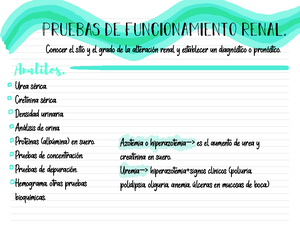 PRUEBAS DE FUNCIONAMIENTO RENAL.
Conocer el sitio y el grado de la alteración renal y establecer un diagnóstico o pronóstico.
Analitos.
Urea sérica.
Cretinina sérica.
Densidad urinaria.
Análisis de orina.
Proteínas (albúmina) en suero.
Pruebas de concentración.
Pruebas de depuración.
Hemograma, otras pruebas
bioquímicas.
Azotemia o hiperazotemia--> es el aumento de urea y
creatinina en suero.
Uremia--> hiperazotemia+signos clínicos (poliuria,
polidipsia, oliguria, anemia, úlceras en mucosas de boca)